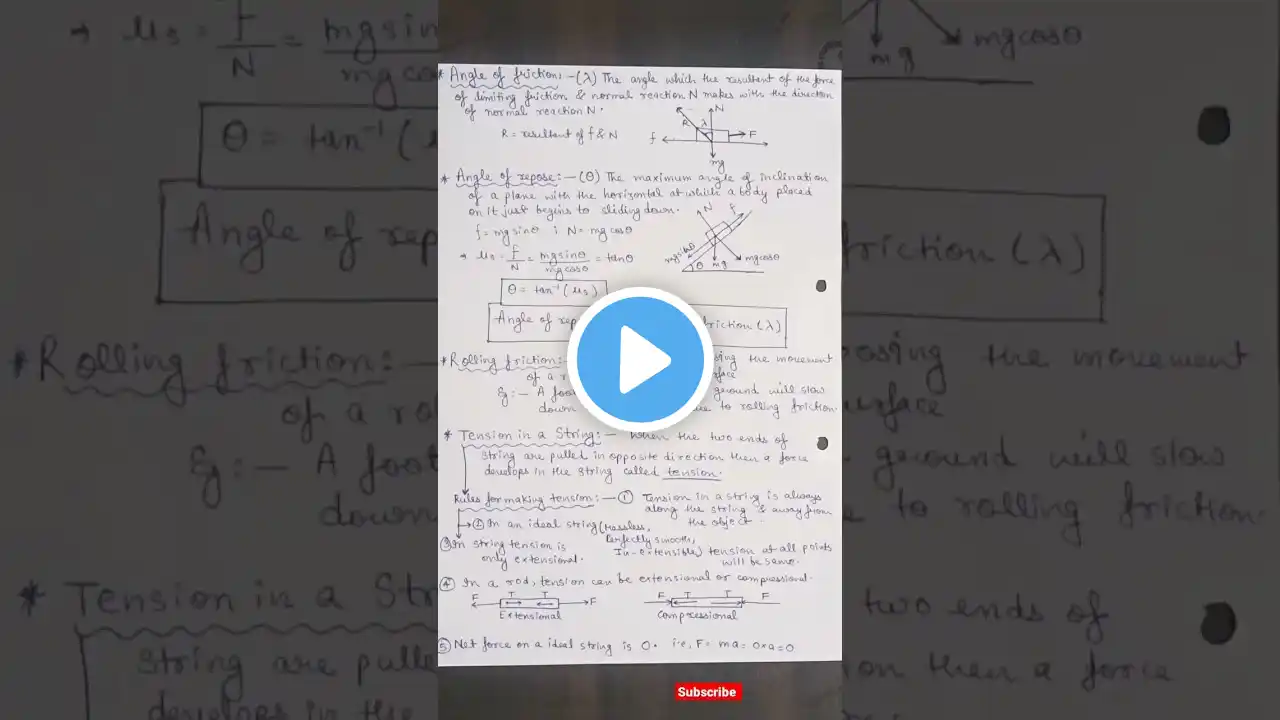 * Angle of friction:-(λ) The angle which the resultent of the force
of limiting friction & normal reaction N makes with the direction
of normal reaction N.
R = resultent of f & N
N
R
λ
f
F
mg
* Angle of repose:-(θ) The maximum angle of inclination
of a plane with the horizontal at which a body placed
on it just begins to sliding down.
f = mg sinθ ; N = mg cosθ
→ μs = f/N = mg sinθ/mg cosθ = tanθ
N
f
mg sinθ
θ
mg
mg cosθ
θ = tan⁻¹(μs)
Angle of rep friction (λ)
* Rolling friction:- sing the movement
of a ro rface
Eg:- A foot ground will slow
down to rolling friction.
* Tension in a String:- When the two ends of
string are pulled in opposite direction then a force
develops in the string called tension.
Rules for making tension:- ① Tension in a string is always
along the string & away from
the object.
② In an ideal string (Massless,
Perfectly smooth,
In-extensible) tension at all points
will be same.
③ In string tension is
only extensional.
④ In a rod, tension can be extensional or compressional.
F T T F
Extensional
F T T F
Compressional
⑤ Net force on a ideal string is 0. i.e, F = ma = 0×a = 0
Subscribe